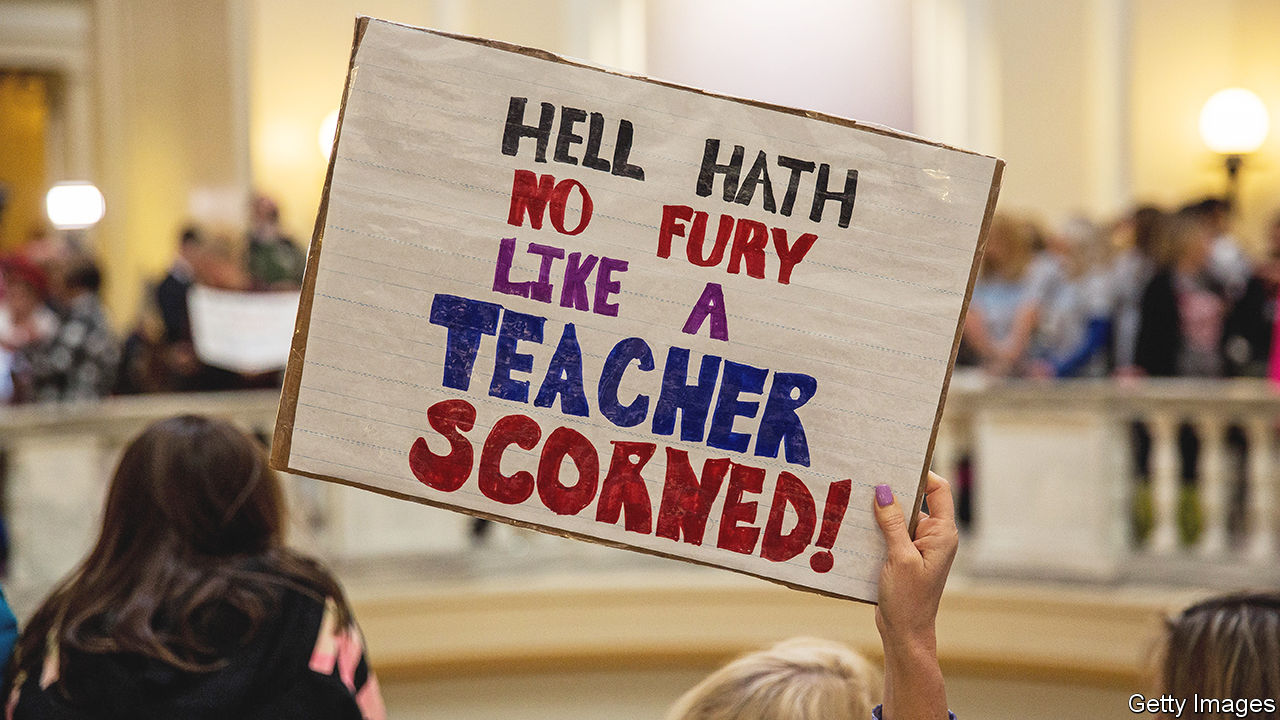 HELL HATH
NO FURY
LIKE A
TEACHER
SCORNED!
Getty Images